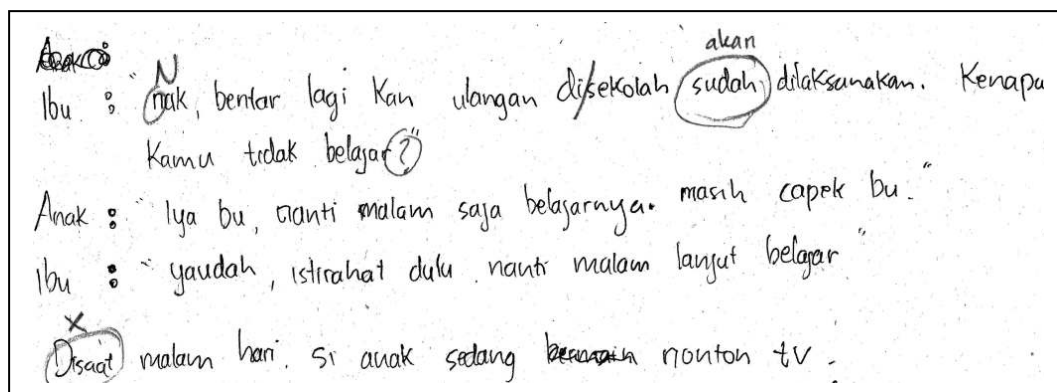 akan
N
Ibu : "nak, bentar lagi kan ulangan di/sekolah sudah dilaksanakan. Kenapa
kamu tidak belajar?"
Anak : "Iya bu, nanti malam saja belajarnya. masih capek bu."
ibu : "yaudah, istirahat dulu. nanti malam lanjut belajar"
x
Disaat malam hari. si anak sedang nonton tv.